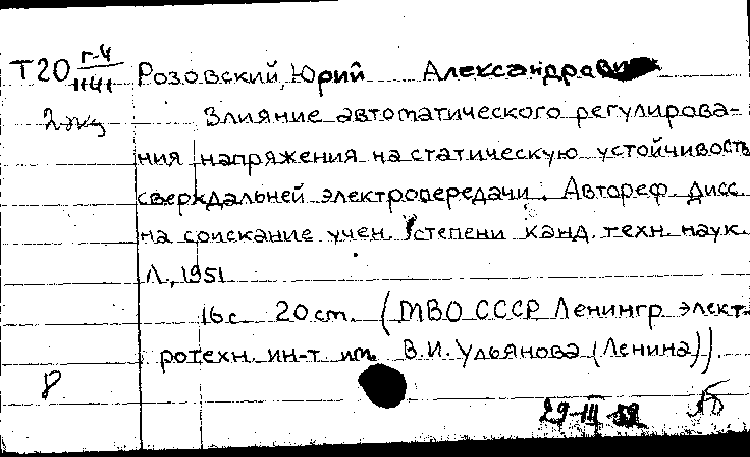 Т20 г-4/1141 Розовский, Юрий Александрович
2 экз Влияние автоматического регулирова-
ния напряжения на статическую устойчивость
сверхдальней электропередачи. Автореф. дисс.
на соискание учен. степени канд. техн. наук.
Л., 1951
16с 20 см. (МВО СССР Ленингр. элект-
ротехн. ин-т им. В.И. Ульянова (Ленина)).
8
29-III-52